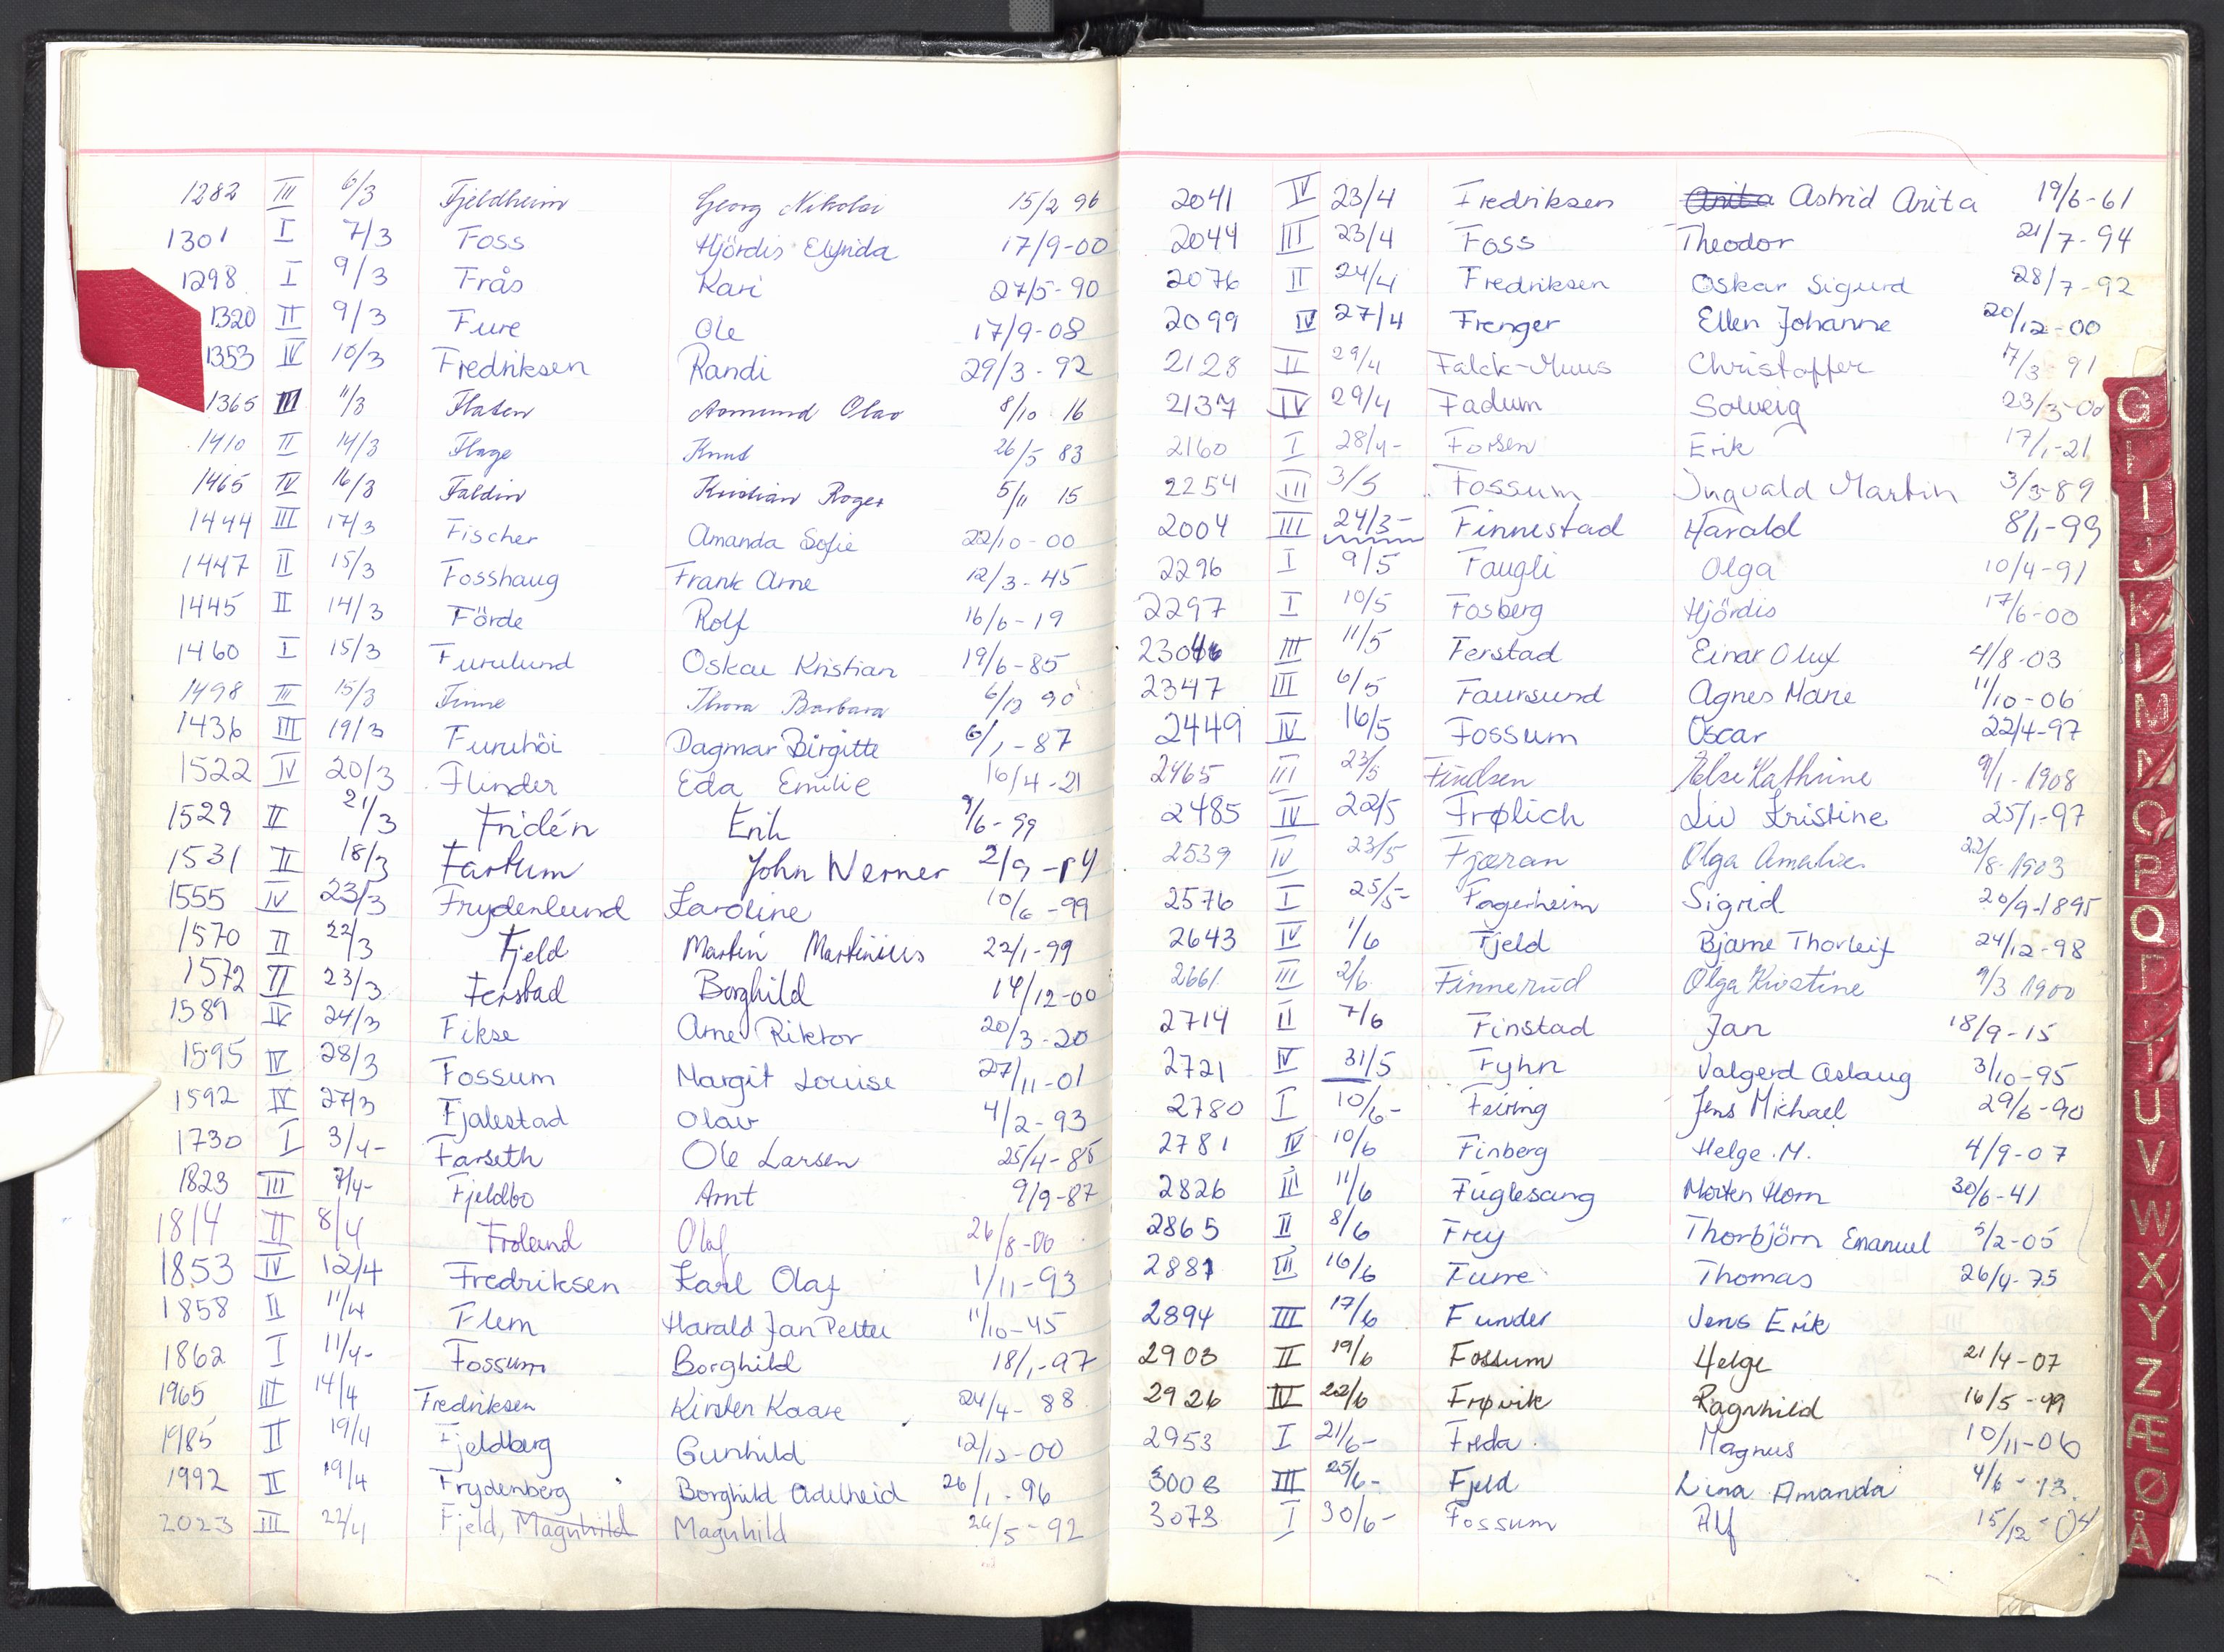 1282 III 6/3 Fjeldheim Georg Nikolai 15/2 96
1301 I 7/3 Foss Hjördis Elynda 17/9-00
1298 I 9/3 Frås Kari 27/5-90
1320 II 9/3 Fure Ole 17/9-08
1353 IV 10/3 Fredriksen Randi 29/3-92
1365 III 11/3 Flaten Asmund Olav 8/10 16
1410 II 14/3 Flage Knud 26/5 83
1465 IV 16/3 Faldin Kristian Roger 5/11 15
1444 III 17/3 Fischer Amanda Sofie 22/10-00
1447 II 15/3 Fosshaug Frank Arne 12/3-45
1445 II 14/3 Förde Rolf 16/6-19
1460 I 15/3 Furulund Oskar Kristian 19/6-85
1498 III 15/3 Finne Thora Barbara 6/12 90
1436 III 19/3 Furuhöi Dagmar Birgitte 6/1-87
1522 IV 20/3 Flinder Eda Emilie 16/4-21
1529 II 21/3 Fridén Erik 9/6-99
1531 II 18/3 Fartum John Werner 2/9-14
1555 IV 23/3 Frydenlund Karoline 10/6-99
1570 II 22/3 Fjeld Martin Martinius 22/1-99
1572 II 23/3 Ferstad Borghild 14/12-00
1589 IV 24/3 Fikse Arne Riktor 20/3-20
1595 IV 28/3 Fossum Margit Louise 27/11-01
1592 IV 27/3 Fjalestad Olav 4/2-93
1730 I 3/4- Farseth Ole Larsen 25/4-85
1823 III 7/4- Fjeldbo Arnt 9/9-87
1814 II 8/4 Froland Olaf 26/8-06
1853 IV 12/4 Fredriksen Karl Olaf 1/11-93
1858 II 11/4 Flem Harald Jan Petter 11/10-45
1862 I 11/4- Fossum Borghild 18/1-97
1965 III 14/4 Fredriksen Kirsten Kaare 24/4-88
1985 II 19/4 Fjeldberg Gunhild 12/12-00
1992 II 19/4 Frydenberg Borghild Adelheid 26/1-96
2023 III 22/4 Fjeld, Magnhild Magnhild 26/5-92
2041 IV 23/4 Fredriksen Anita Astrid Anita 19/6-61
2044 III 23/4 Foss Theodor 21/7-94
2076 II 24/4 Fredriksen Oskar Sigurd 28/7-92
2099 IV 27/4 Frenger Ellen Johanne 20/12-00
2128 II 29/4 Falck-Muus Christoffer 7/3 91
2137 IV 29/4 Fadum Solveig 23/3-00
2160 I 28/4- Forsen Erik 17/1-21
2254 III 3/5 Fossum Ingvald Martin 3/3-89
2004 III 24/3- Finnestad Harald 8/1-99
2296 I 9/5 Faugli Olga 10/4-91
2297 I 10/5 Fosberg Hjördis 17/6-00
2306 III 11/5 Ferstad Einar Oluf 4/8-03
2347 III 6/5 Faursund Agnes Marie 11/10-06
2449 IV 16/5 Fossum Oscar 22/4-97
2465 III 23/5 Findsen Else Kathrine 9/1-1908
2485 IV 22/5 Frølich Liv Kristine 25/1-97
2539 IV 23/5 Fjæran Olga Amalie 22/8-1903
2576 I 25/5- Fagerheim Sigrid 20/9-1895
2643 IV 1/6 Fjeld Bjarne Thorleif 24/12-98
2661 III 2/6 Finnerud Olga Kristine 9/3 1900
2714 II 7/6 Finstad Jan 18/9-15
2721 IV 31/5 Fyhn Valgerd Aslaug 3/10-95
2780 I 10/6- Feiring Jens Michael 29/6-90
2781 IV 10/6 Finberg Helge M. 4/9-07
2826 III 11/6 Fuglesang Morten Horn 30/6-41
2865 II 8/6 Frey Thorbjörn Emanuel 5/2-05
2881 III 16/6 Furre Thomas 26/4-75
2894 III 17/6 Funder Jens Erik
2903 II 19/6 Fossum Helge 21/4-07
2926 IV 22/6 Frøvik Ragnhild 16/5-99
2953 I 21/6- Freda Magnus 10/11-06
3008 III 25/6- Fjeld Lina Amanda 4/6-13.
3073 I 30/6- Fossum Alf 15/12-04
G
H
I
J
K
L
M
N
O
P
Q
R
T
U
V
W
X
Y
Z
Æ
Ø
Å